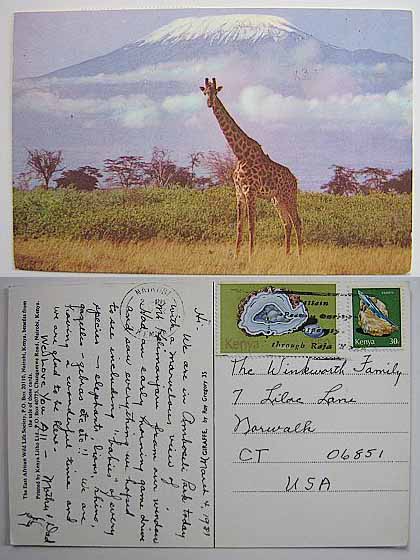 The East African Wild Life Society P.O. Box 20110, Nairobi, Kenya, benefits from
the sale of these cards.
Printed by Kenya Litho Ltd. P.O. Box 40775, Changamwe Road, Nairobi, Kenya.
March 4, 1981
Hi-
We are in Amboseli Park today
with a marvelous view of
Mt. Kilimanjaro from our window
Had an early morning game drive
and saw everything we hoped
to see including "babies" of every
species - elephants, lions, rhino,
gazelles - zebras etc etc!! We are
having a wonderful time and
are glad to be here
We love you All - Mother & Dad
NAIROBI
through
Kenya
Kenya
30c
The Winkworth Family
7 Lilac Lane
Norwalk
CT 06851
USA